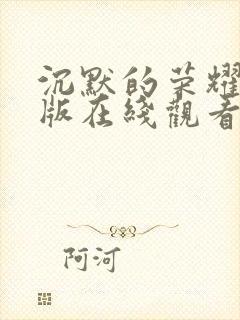 沉默的荣耀
版在綫觀看
阿河